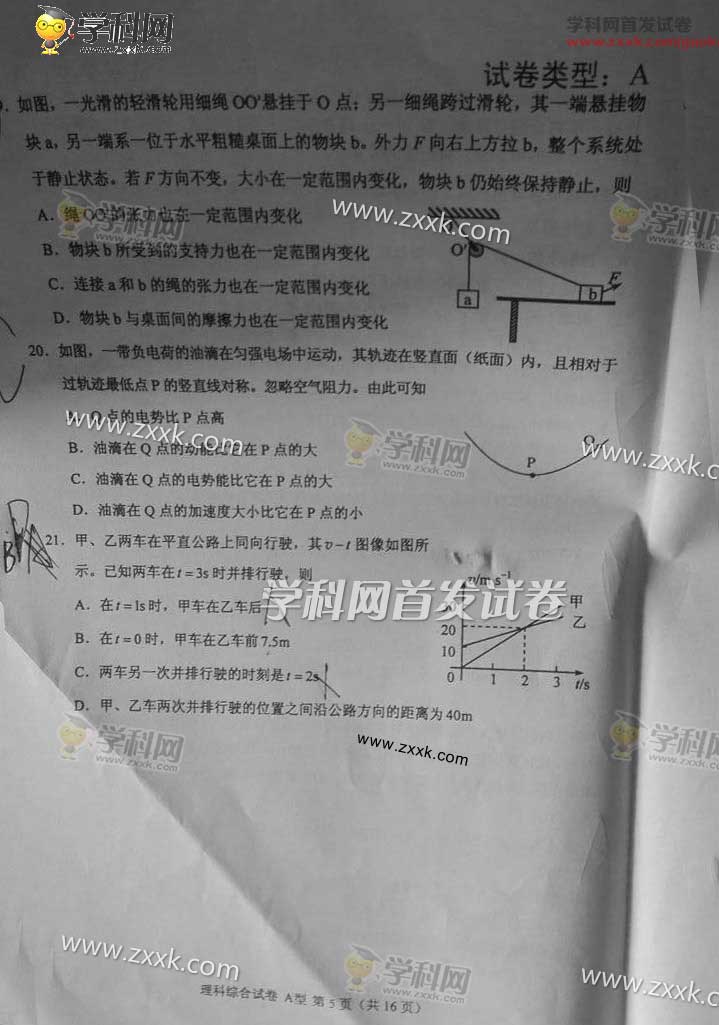 学科网
www.zxxk.com
学科网首发试卷
试卷类型：A
如图，一光滑的轻滑轮用细绳OO'悬挂于O点；另一细绳跨过滑轮，其一端悬挂物
块a，另一端系一位于水平粗糙桌面上的物块b。外力F向右上方拉b，整个系统处
于静止状态。若F方向不变，大小在一定范围内变化，物块b仍始终保持静止，则
A．绳OO'的张力也在一定范围内变化
B．物块b所受到的支持力也在一定范围内变化
C．连接a和b的绳的张力也在一定范围内变化
D．物块b与桌面间的摩擦力也在一定范围内变化
www.zxxk.com
学科网
www.zxxk.com
学科网
O'
a
b
F
20．如图，一带负电荷的油滴在匀强电场中运动，其轨迹在竖直面（纸面）内，且相对于
过轨迹最低点P的竖直线对称。忽略空气阻力。由此可知
Q点的电势比P点高
B．油滴在Q点的动能比它在P点的大
C．油滴在Q点的电势能比它在P点的大
D．油滴在Q点的加速度大小比它在P点的小
www.zxxk.com
学科网
www.zxxk.com
www.zxxk.com
P
Q
21．甲、乙两车在平直公路上同向行驶，其v－t图像如图所
示。已知两车在t＝3s时并排行驶，则
A．在t＝1s时，甲车在乙车后
B．在t＝0时，甲车在乙车前7.5m
C．两车另一次并排行驶的时刻是t＝2s
D．甲、乙车两次并排行驶的位置之间沿公路方向的距离为40m
学科网首发试卷
v/m·s⁻¹
甲
乙
20
10
0
1 2 3 t/s
学科网
www.zxxk.com
www.zxxk.com
学科网
www.zxxk.com
www.zxxk.com
学科网
www.zxxk.com
www.zxxk.com
理科综合试卷 A型 第5页（共16页）